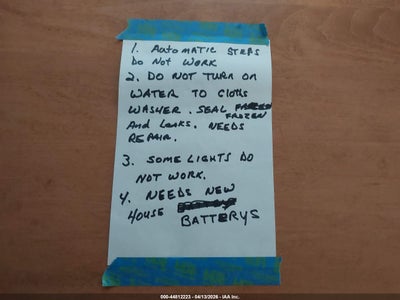 1. AutoMATIC STEPS
DO NOT WORK
2. DO NOT TURN ON
WATER TO CLOTHS
WASHER. SEAL
FROZEN
And LEAKS. NEEDS
REPAIR.
3. SOME LIGHTS DO
NOT WORK.
4. NEEDS NEW
HOUSE
BATTERYS
000-44812223 - 04/13/2026 - IAA Inc.